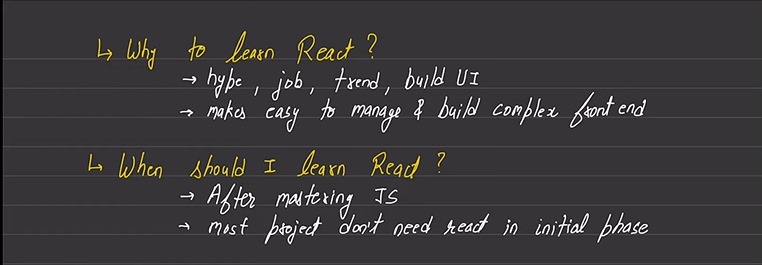 ↳ Why to learn React ?
→ hype, job, trend, build UI
→ makes easy to manage & build complex front end
↳ When should I learn React ?
→ After mastering JS
→ most project don't need react in initial phase